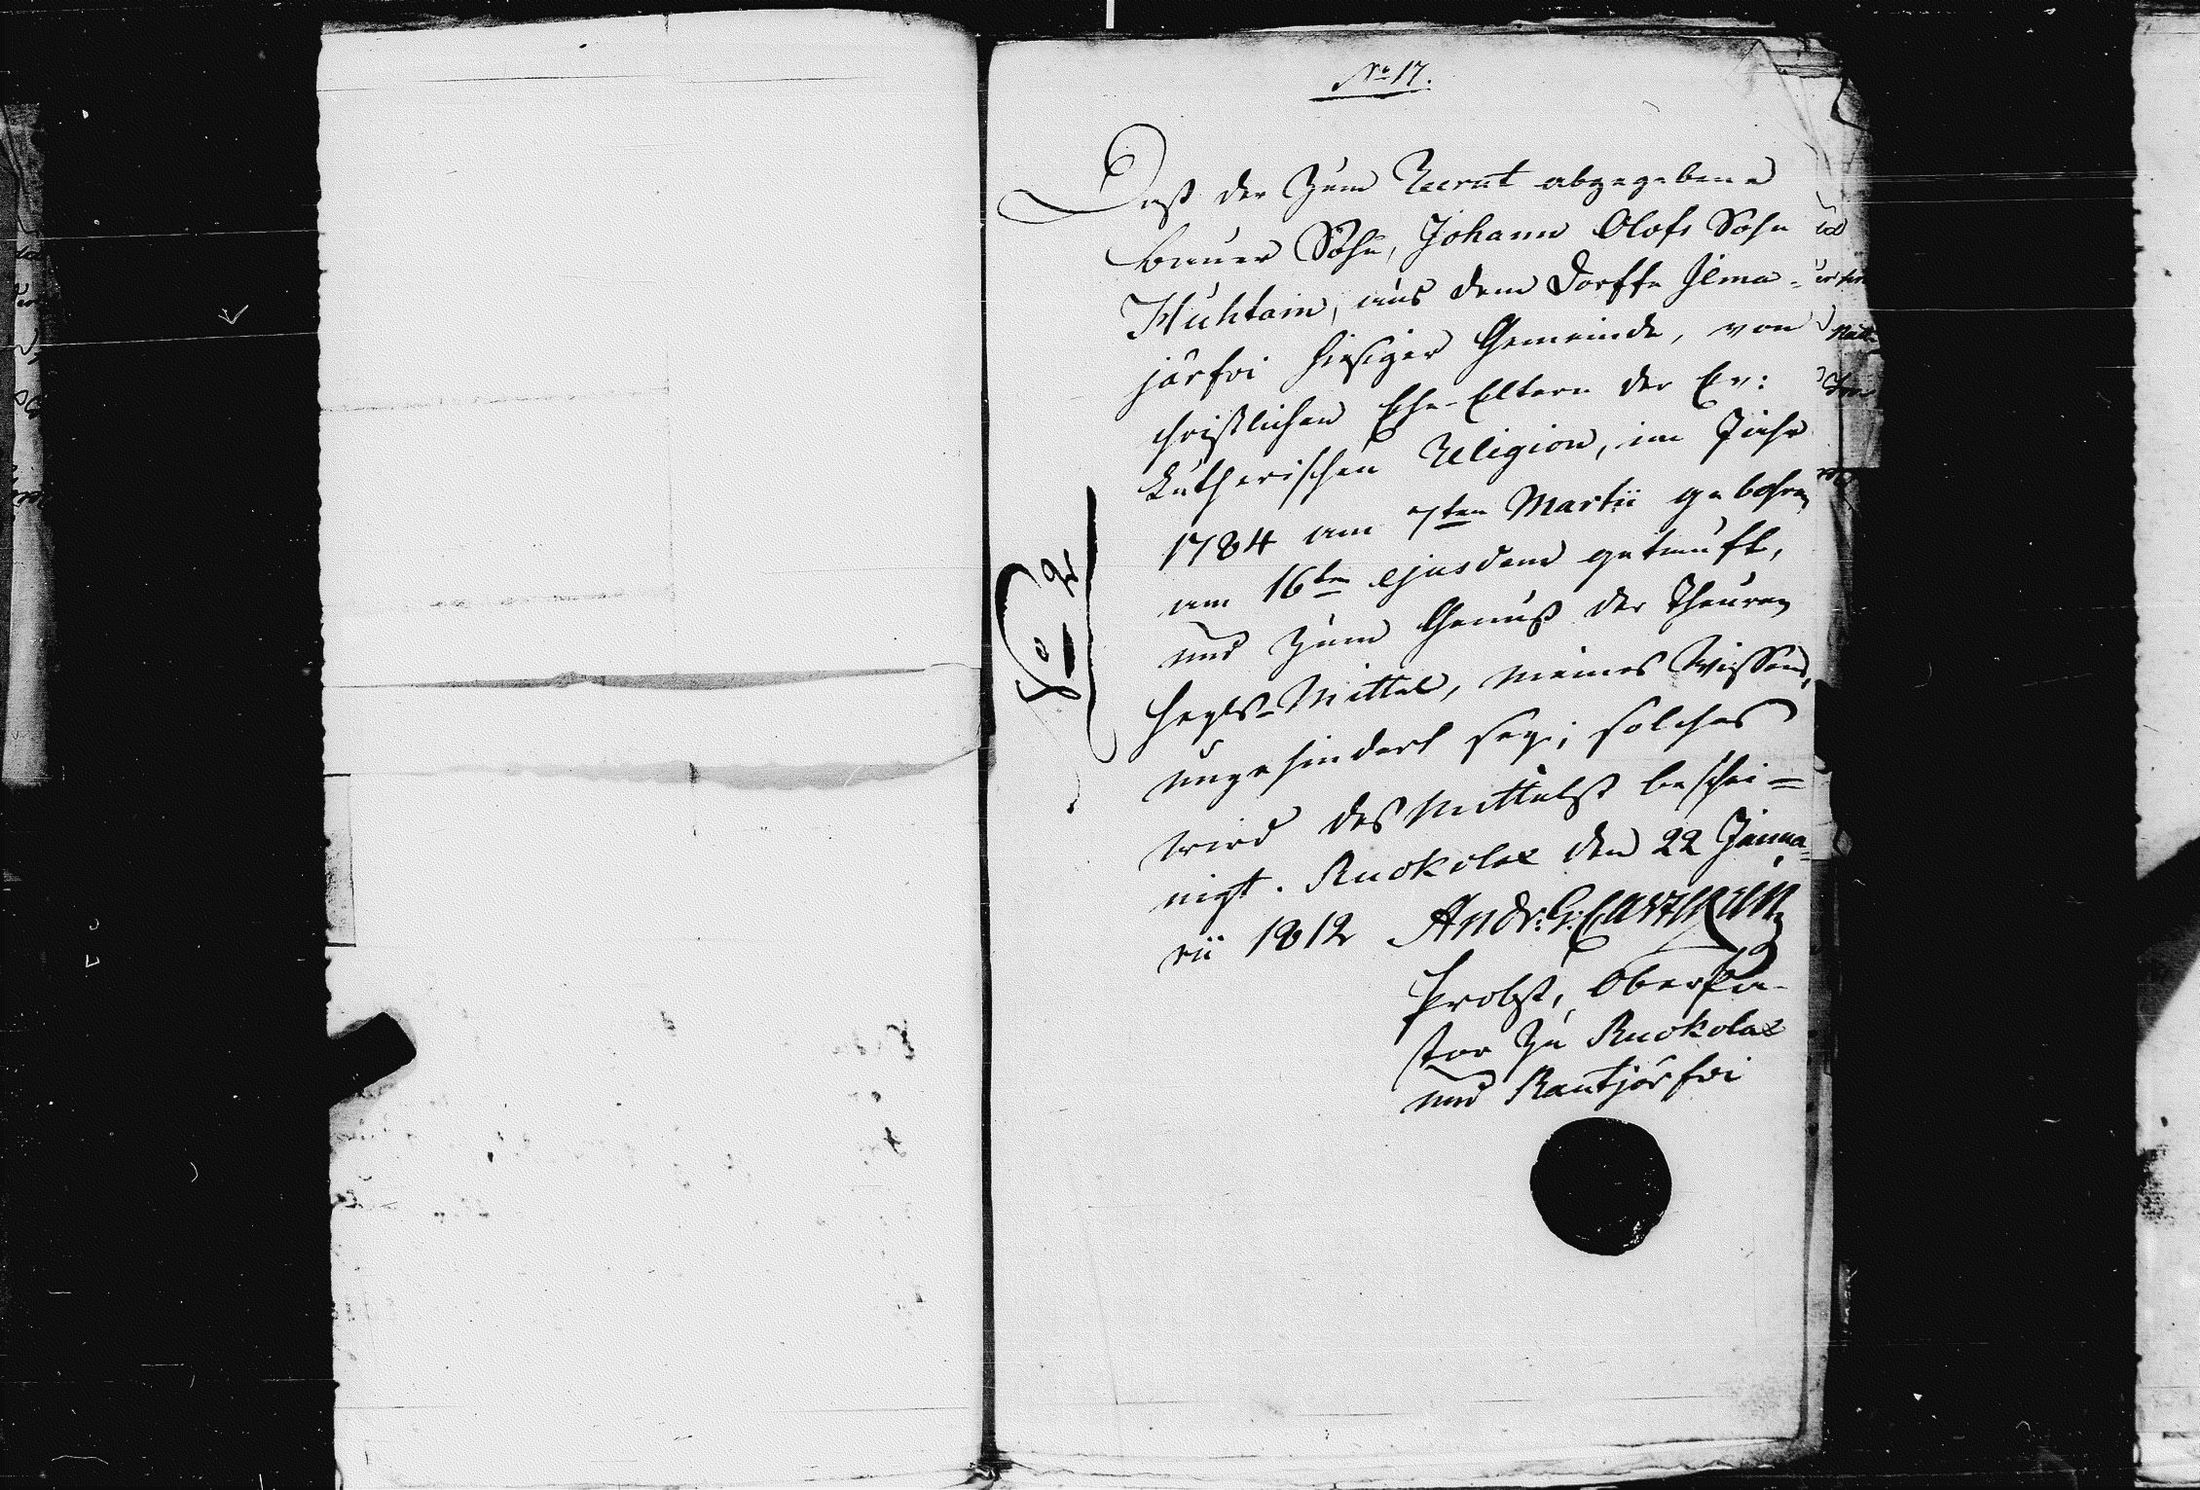 No 17.
Daß der zum Recrut abgegebene
Bauer Sohn, Johann Olofs Sohn
Huhtain, aus dem Dorffe Ilma-
järfvi hiesiger Gemeinde, von
christlichen Ehe-Eltern der Ev:
Lutherischen Religion, im Jahr
1784 am 7ten Martii gebohren,
am 16ten ejusdem getauft,
und zum Genuß der Theuren
Heyls-Mittel, meines Wissens,
ungehindert sey; solches
wird desmittelst beschei=
nigt. Ruokolax den 22 Janua=
rii 1812 Andr: G:
Probst, OberPa-
stor zu Ruokolax
und Rautjärfvi